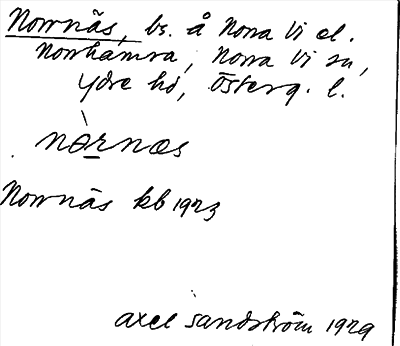 Norrnäs, bs. å Norra Vi el.
Norrhamra, Norra Vi sn,
Ydre hd, Österg. l.
nòrnæs
Norrnäs kb 1923
Axel Sandström 1929